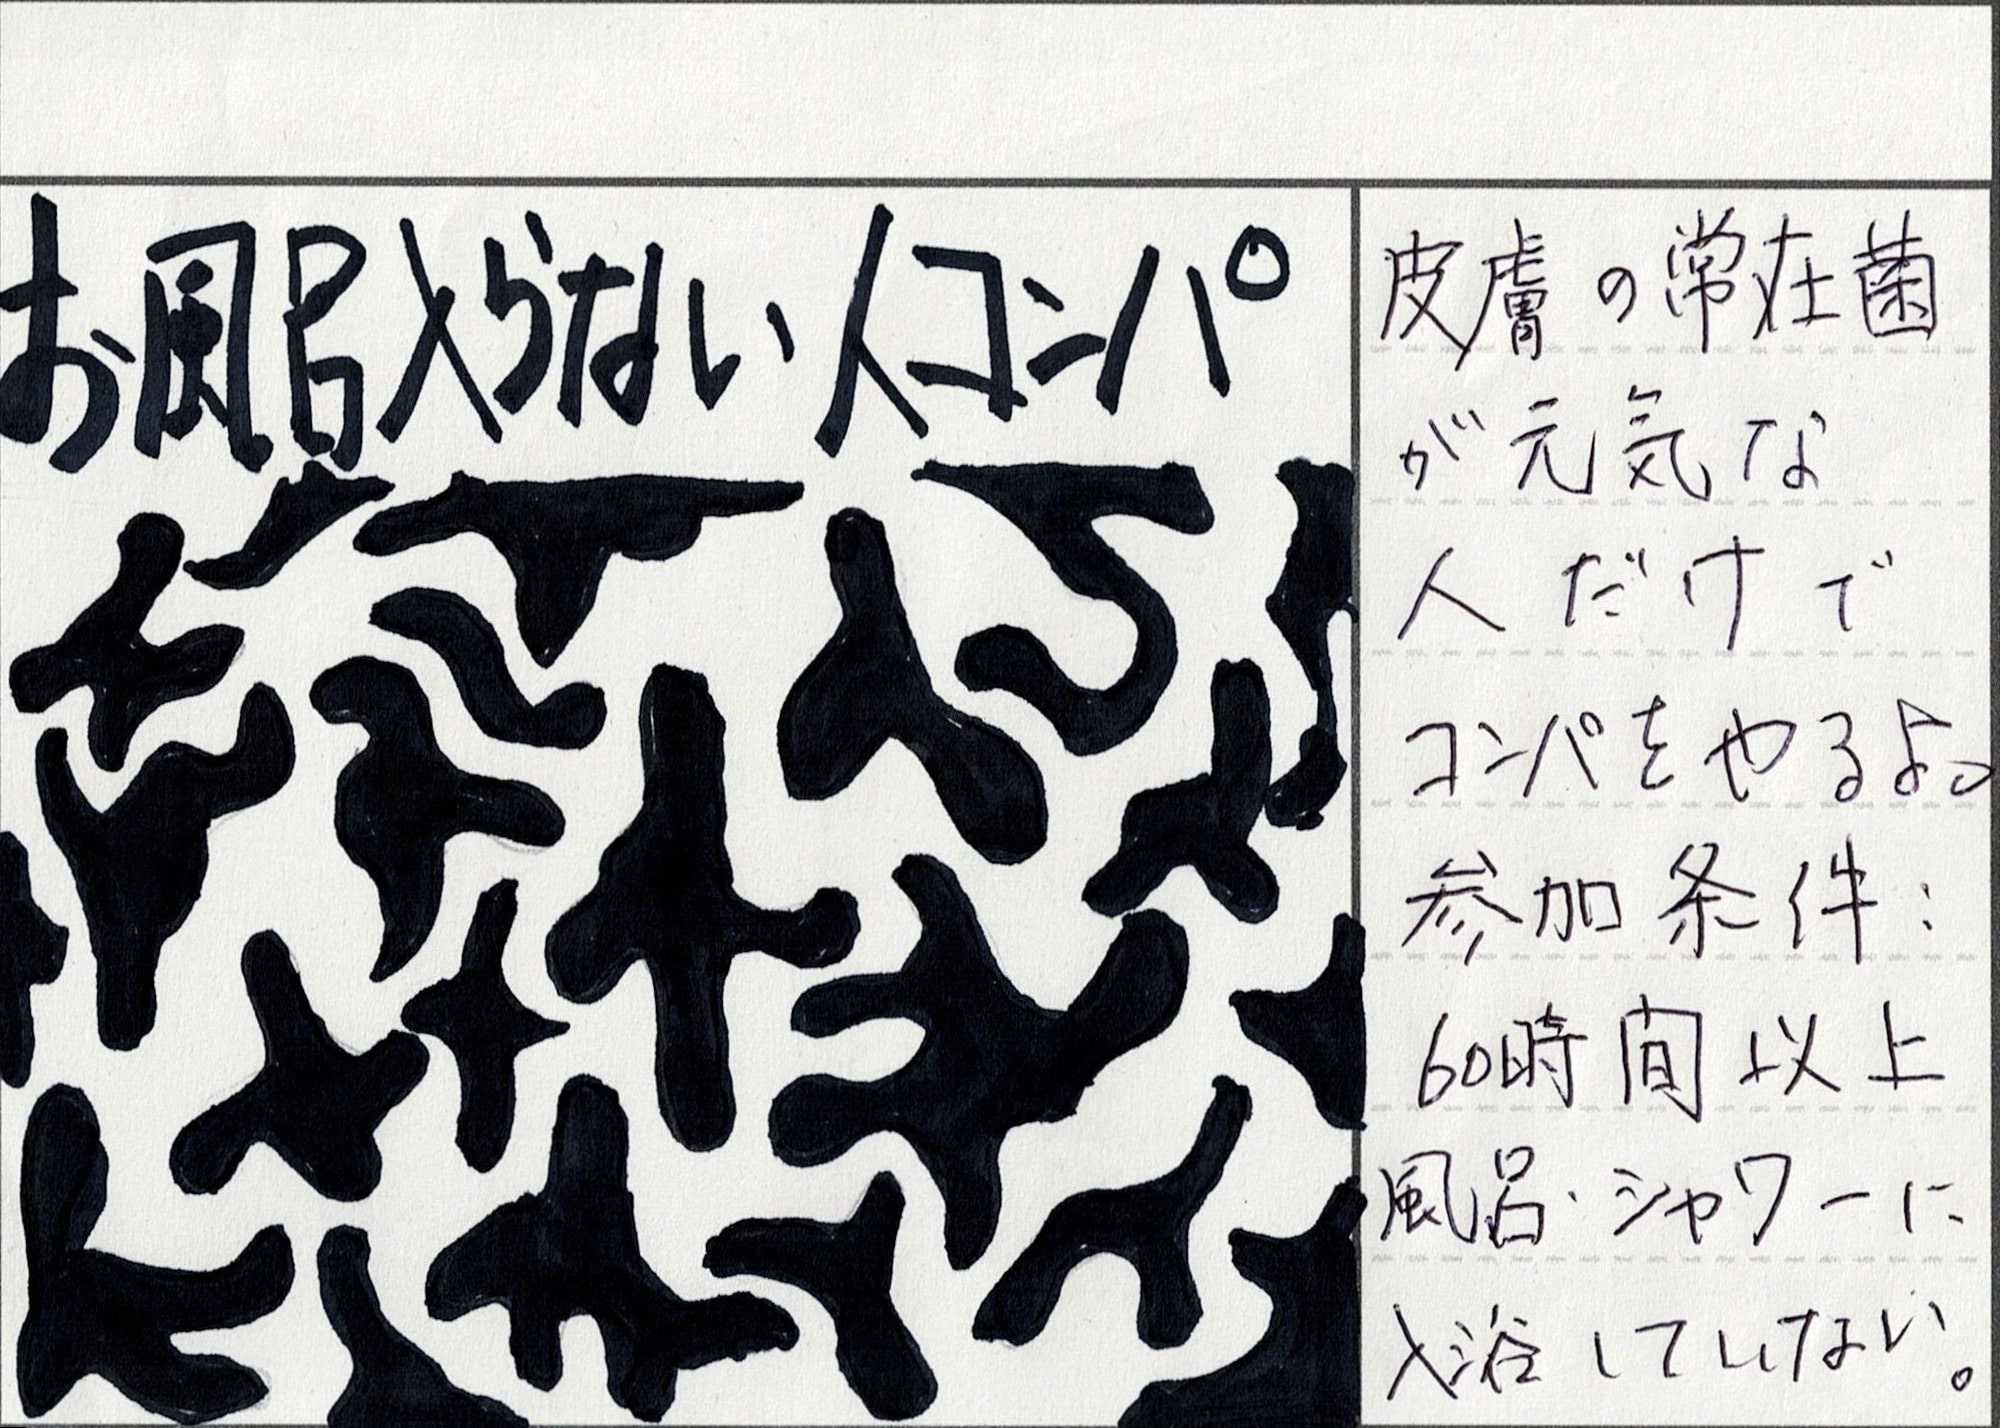 お風呂入らない人コンパ
皮膚の常在菌
が元気な
人だけで
コンパをやるよ。
参加条件:
60時間以上
風呂・シャワーに
入浴していない。